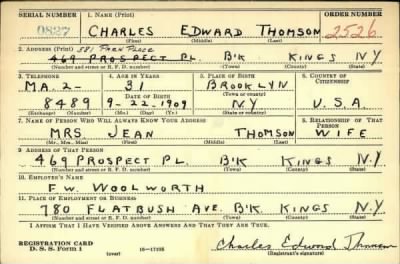 SERIAL NUMBER 1. NAME (Print) ORDER NUMBER
0827 CHARLES EDWARD THOMSON 2526
(First) (Middle) (Last)
2. ADDRESS (Print) 581 PARK PLACE
469 PROSPECT PL. B'K KINGS N.Y
(Number and street or R. F. D. number) (Town) (County) (State)
3. TELEPHONE 4. AGE IN YEARS 5. PLACE OF BIRTH 6. COUNTRY OF CITIZENSHIP
MA. 2- 31 BROOKLYN
(Town)
8489 9-22-1909 N.Y U.S.A.
(Exchange) (Number) (Mo.) (Day) (Yr.) (State or country)
7. NAME OF PERSON WHO WILL ALWAYS KNOW YOUR ADDRESS 8. RELATIONSHIP OF THAT PERSON
MRS. JEAN THOMSON WIFE
(Mr., Mrs., Miss) (First) (Middle) (Last)
9. ADDRESS OF THAT PERSON
469 PROSPECT PL. B'K KINGS N.Y
(Number and street or R. F. D. number) (Town) (County) (State)
10. EMPLOYER'S NAME
F.W. WOOLWORTH
11. PLACE OF EMPLOYMENT OR BUSINESS
780 FLATBUSH AVE. B'K. KINGS N.Y
(Number and street or R. F. D. number) (Town) (County) (State)
I AFFIRM THAT I HAVE VERIFIED ABOVE ANSWERS AND THAT THEY ARE TRUE.
REGISTRATION CARD
D. S. S. Form 1 (over) 16—17105 Charles Edward Thomson
(Registrant's signature)